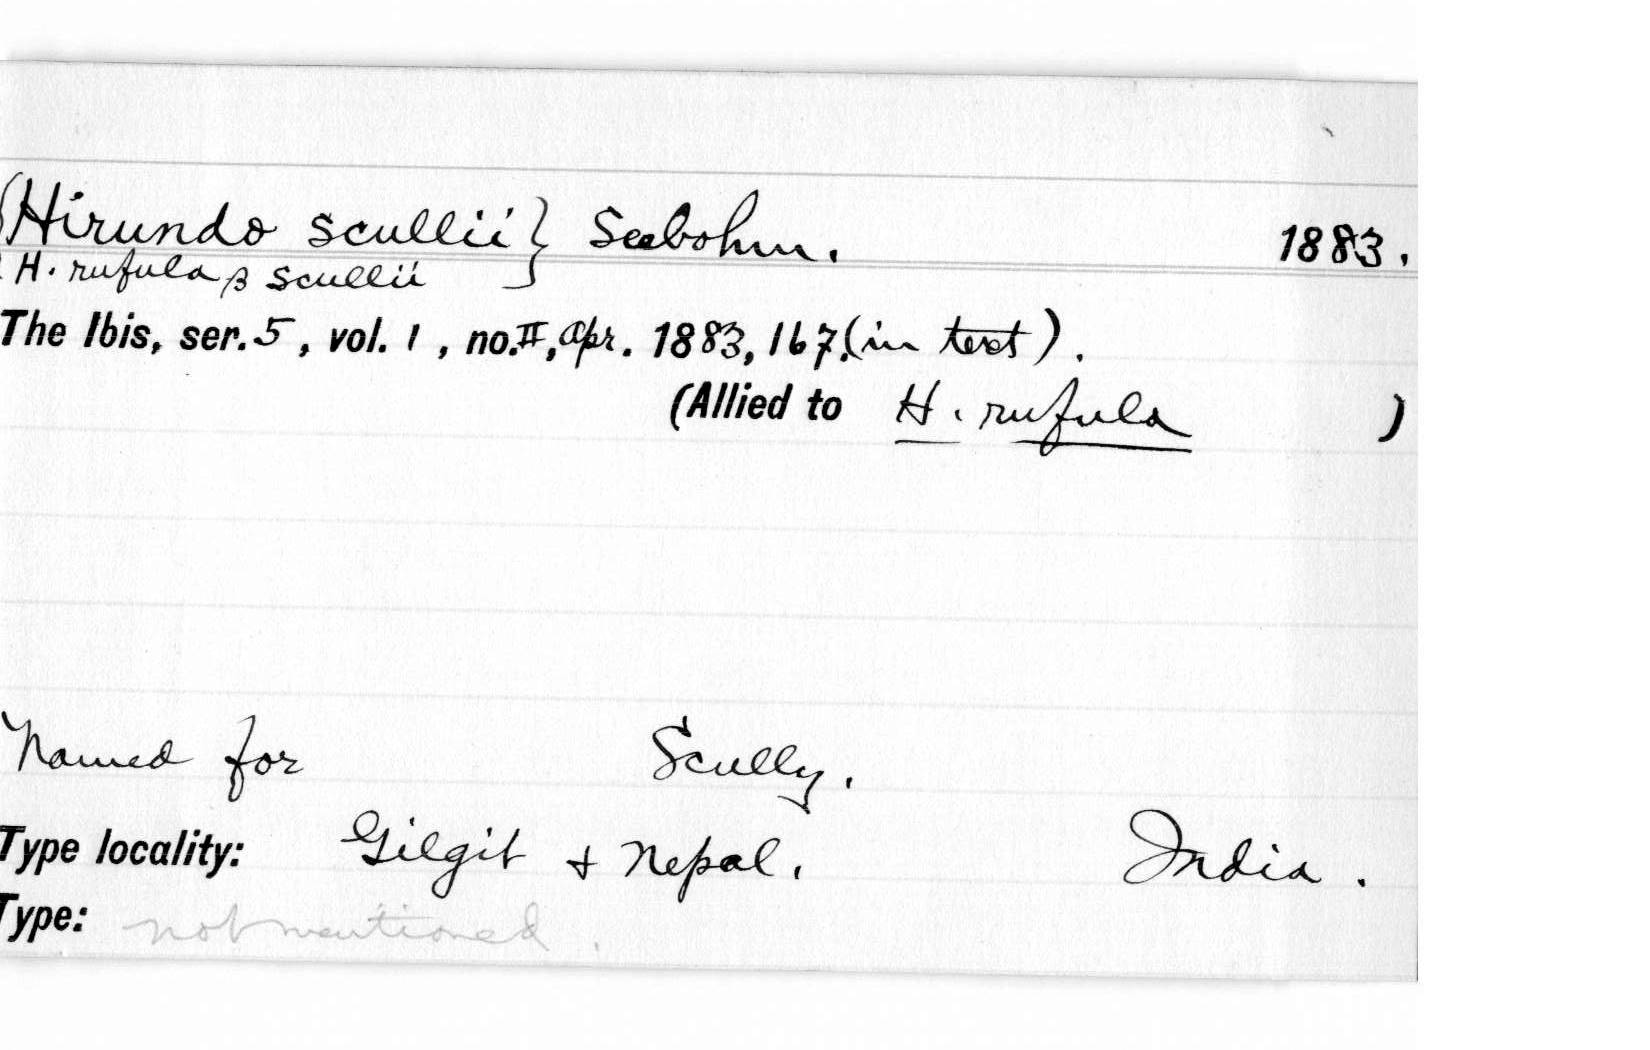 {Hirundo scullii} Seebohm. 1883.
{H. rufula β scullii
The Ibis, ser. 5, vol. 1, no. II, Apr. 1883, 167. (in text).
(Allied to H. rufula )
Named for Scully.
Type locality: Gilgit + Nepal. India.
Type: not mentioned.